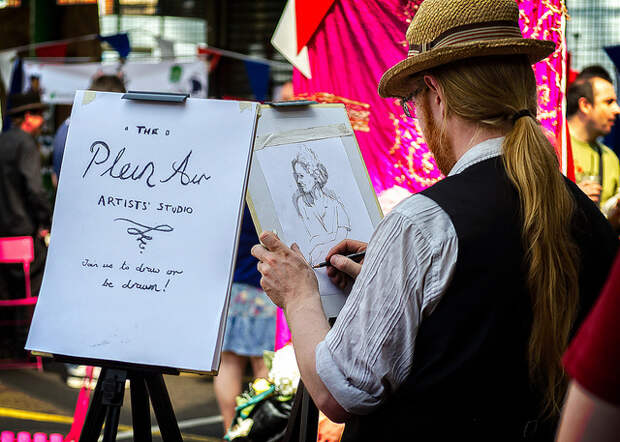 "THE"
Plein Air
ARTISTS' STUDIO
Join us to draw or
be drawn!